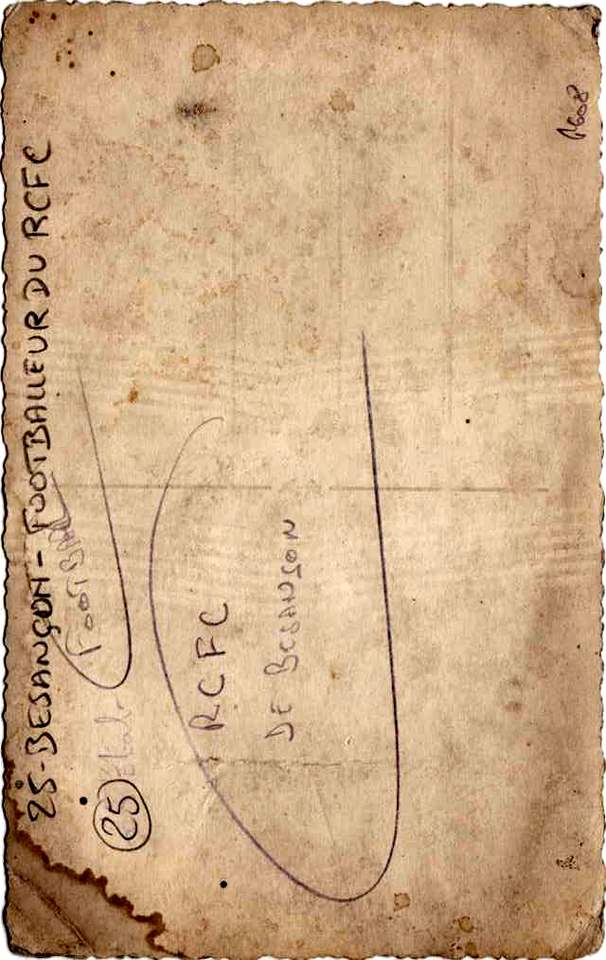 25-BESANÇON-FOOTBALLEUR DU RCFC
FOOTBALL
25
RCFC
DE BESANSON